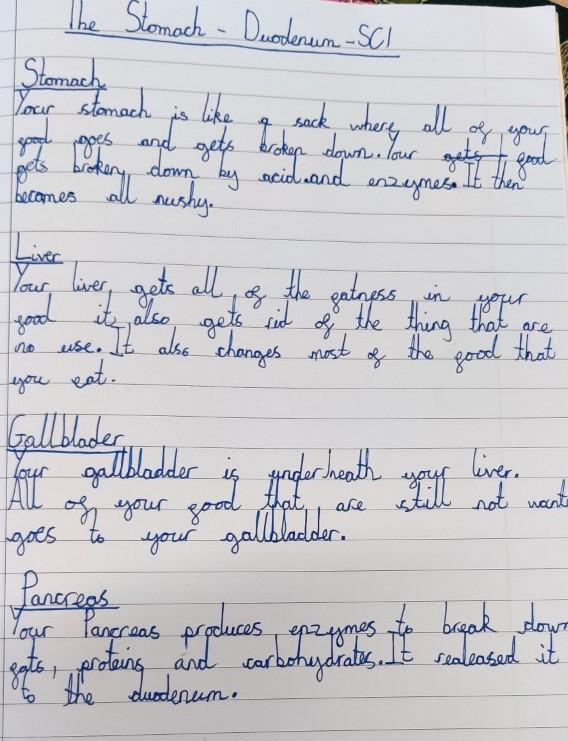 The Stomach - Duodenum - SCI
Stomach
Your stomach is like a sack where all of your
food goes and gets broken down. Your gets food
gets broken down by acid and enzymes. It then
becomes all mushy.
Liver
Your liver gets all of the fatness in your
food it also gets rid of the thing that are
no use. It also changes most of the food that
you eat.
Gallblader
Your gallbladder is underneath your liver.
All of your food that are still not want
goes to your gallbladder.
Pancreas
Your Pancreas produces enzymes to break down
fats, proteins and carbohydrates. It realeased it
to the duodenum.